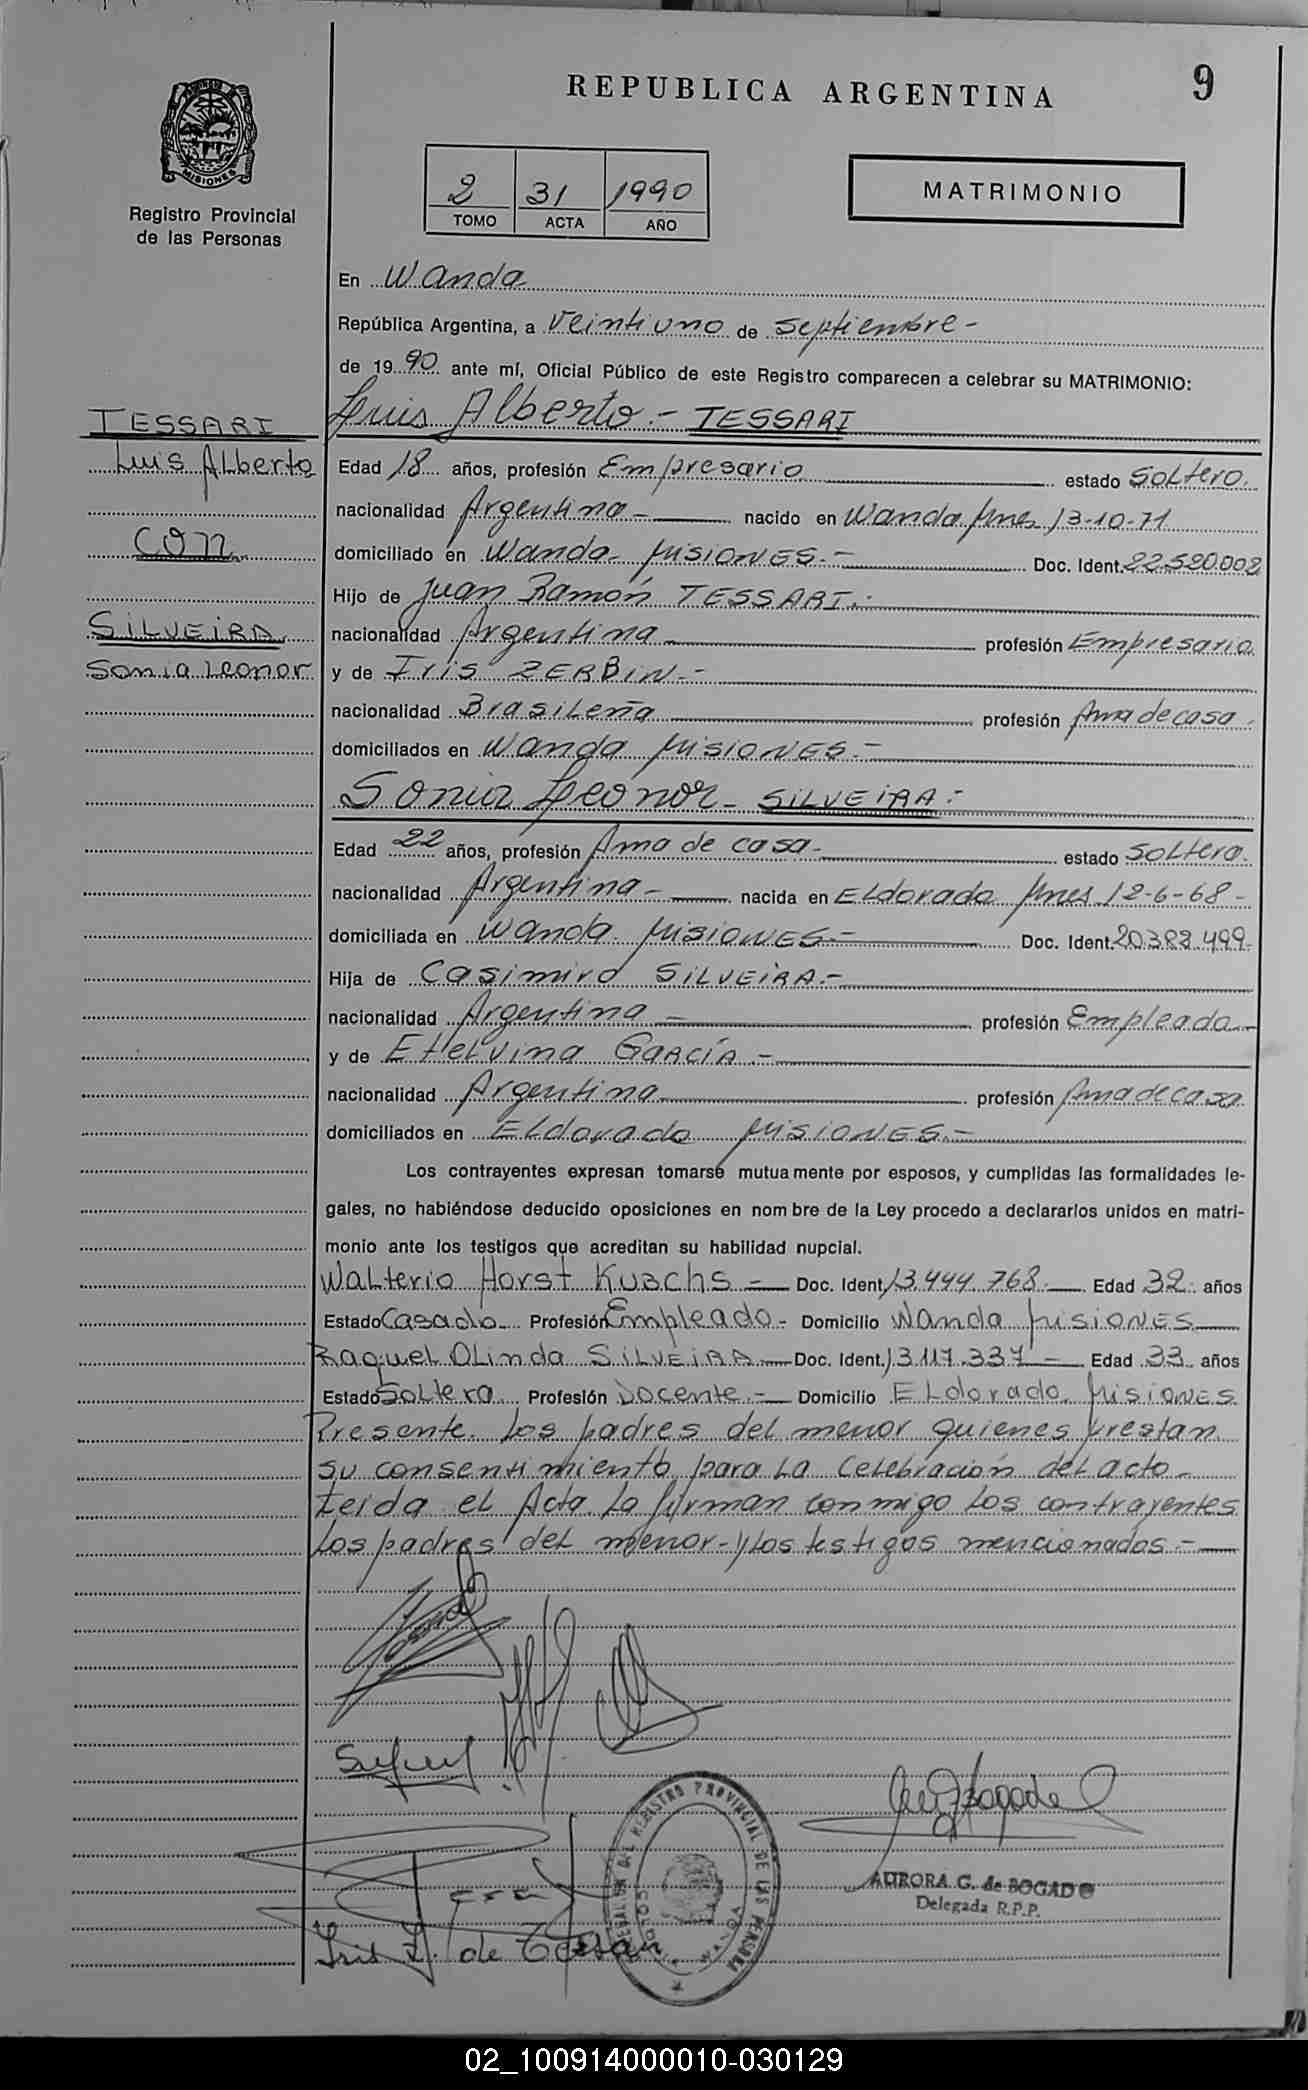 REPUBLICA ARGENTINA
9
MISIONES
Registro Provincial
de las Personas
2 31 1990
TOMO ACTA AÑO
MATRIMONIO
En Wanda
República Argentina, a Veintiuno de Septiembre-
de 19 90 ante mí, Oficial Público de este Registro comparecen a celebrar su MATRIMONIO:
TESSARI
Luis Alberto
con
SILVEIRA
Sonia Leonor
Luis Alberto.- TESSARI
Edad 18 años, profesión Empresario estado Soltero.
nacionalidad Argentina- nacido en Wanda Mnes 13-10-71
domiciliado en Wanda- Misiones.- Doc. Ident. 22.520.002
Hijo de Juan Ramón TESSARI.-
nacionalidad Argentina profesión Empresario
y de Iris ZERBIN.-
nacionalidad Brasileña profesión Ama de casa.
domiciliados en Wanda Misiones.-
Sonia Leonor- SILVEIRA.-
Edad 22 años, profesión Ama de casa- estado Soltera.
nacionalidad Argentina- nacida en Eldorado Mnes 12-6-68-
domiciliada en Wanda Misiones- Doc. Ident. 20.383.499-
Hija de Casimiro Silveira.-
nacionalidad Argentina- profesión Empleado
y de Etelvina García.-
nacionalidad Argentina profesión Ama de casa
domiciliados en Eldorado Misiones.-
Los contrayentes expresan tomarse mutuamente por esposos, y cumplidas las formalidades le-
gales, no habiéndose deducido oposiciones en nombre de la Ley procedo a declararlos unidos en matri-
monio ante los testigos que acreditan su habilidad nupcial.
Walterio Horst Kubchs- Doc. Ident. 13.444.768- Edad 32 años
Estado Casado Profesión Empleado- Domicilio Wanda Misiones
Raquel Olinda SILVEIRA Doc. Ident. 13.117.337- Edad 33 años
Estado Soltera Profesión Docente.- Domicilio Eldorado Misiones
Presente los padres del menor quienes prestan
su consentimiento para la celebración del acto-
Leida el Acta la firman conmigo los contrayentes
los padres del menor-y los testigos mencionados.-
Iris Z. de Tessari
REGISTRO PROVINCIAL DE LAS PERSONAS
WANDA
AURORA G. de BOGADO
Delegada R.P.P.
02_100914000010-030129